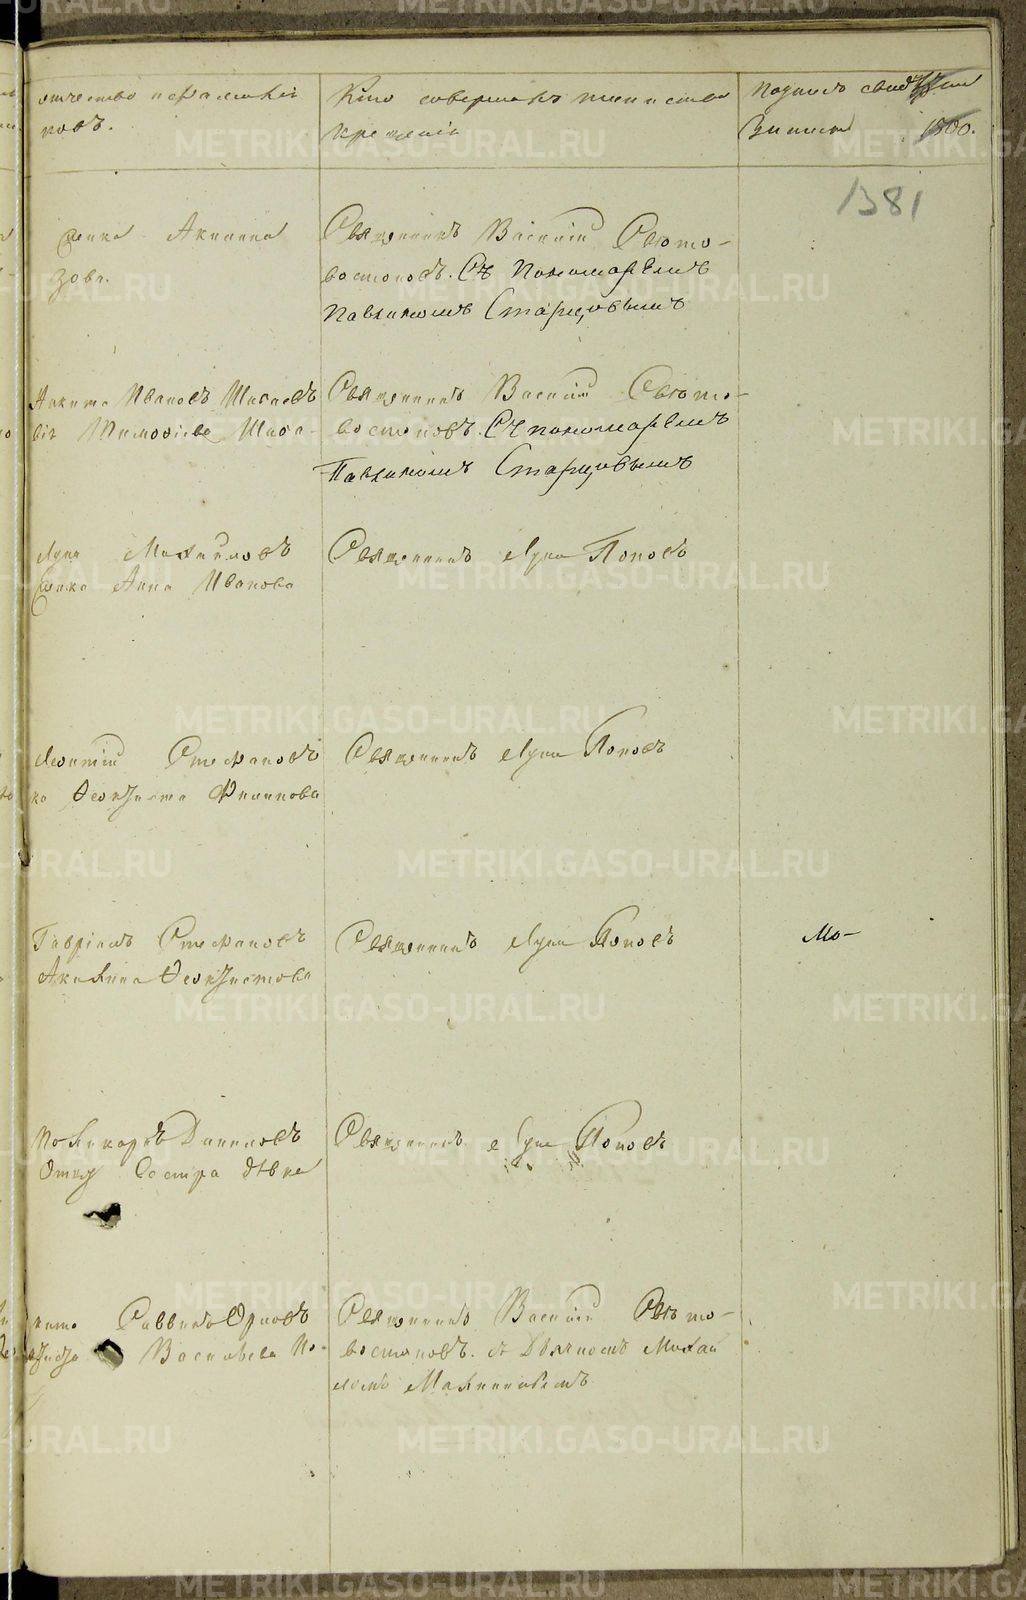 отчество и фамилия
ковъ.
Кто совершалъ таинство
крещенія
Подпись свидѣ
Записи 1500.
1381
Акилина
зова.
Священникъ Василій Свѣто-
востоковъ. Съ Пономаремъ
Павлиномъ Старцовымъ
Никита Ивановъ
Тимофіева
Священникъ Василій Свѣто-
востоковъ. Съ пономаремъ
Павлиномъ Старцовымъ
Лука Михайловъ
Анна Иванова
Священникъ Лука Поповъ
Леонтій Стефановъ
ка Ѳеоктиста Филипова
Священникъ Лука Поповъ
Гавріилъ Стефановъ
Акилина Ѳеоктистова
Священникъ Лука Поповъ
Мо-
Поликарпъ Даниловъ
Сестра дѣвка
Священникъ Лука Поповъ
Савва
Васильева По-
Священникъ Василій Свѣто-
востоковъ. съ Дьячкомъ Михаи
ломъ
METRIKI.GASO-URAL.RU